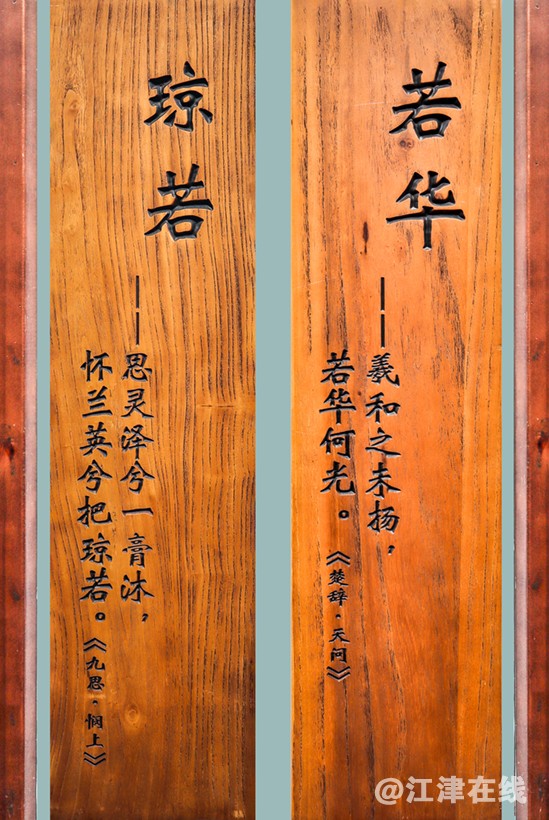 若华
——羲和之未扬，
若华何光。《楚辞·天问》
琼若
——思灵泽兮一膏沐，
怀兰英兮把琼若。《九思·悯上》
@江津在线